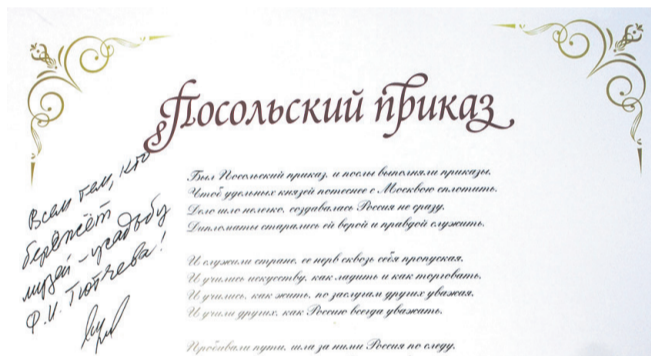 Посольский приказ
Был Посольский приказ, и послы выполняли приказы,
Чтоб удельных князей потеснее с Москвою сплотить.
Дело шло нелегко, создавалась Россия не сразу.
Дипломаты старались ей верой и правдой служить.
И служили стране, ее нерв сквозь себя пропуская.
И учились искусству, как ладить и как торговать.
И учились, как жить, по заслугам других уважая,
И учили других, как Россию всегда уважать.
Пробивали пути, шла за ними Россия по следу.
Всем тем, кто
бережёт
музей-усадьбу
Ф.И. Тютчева!